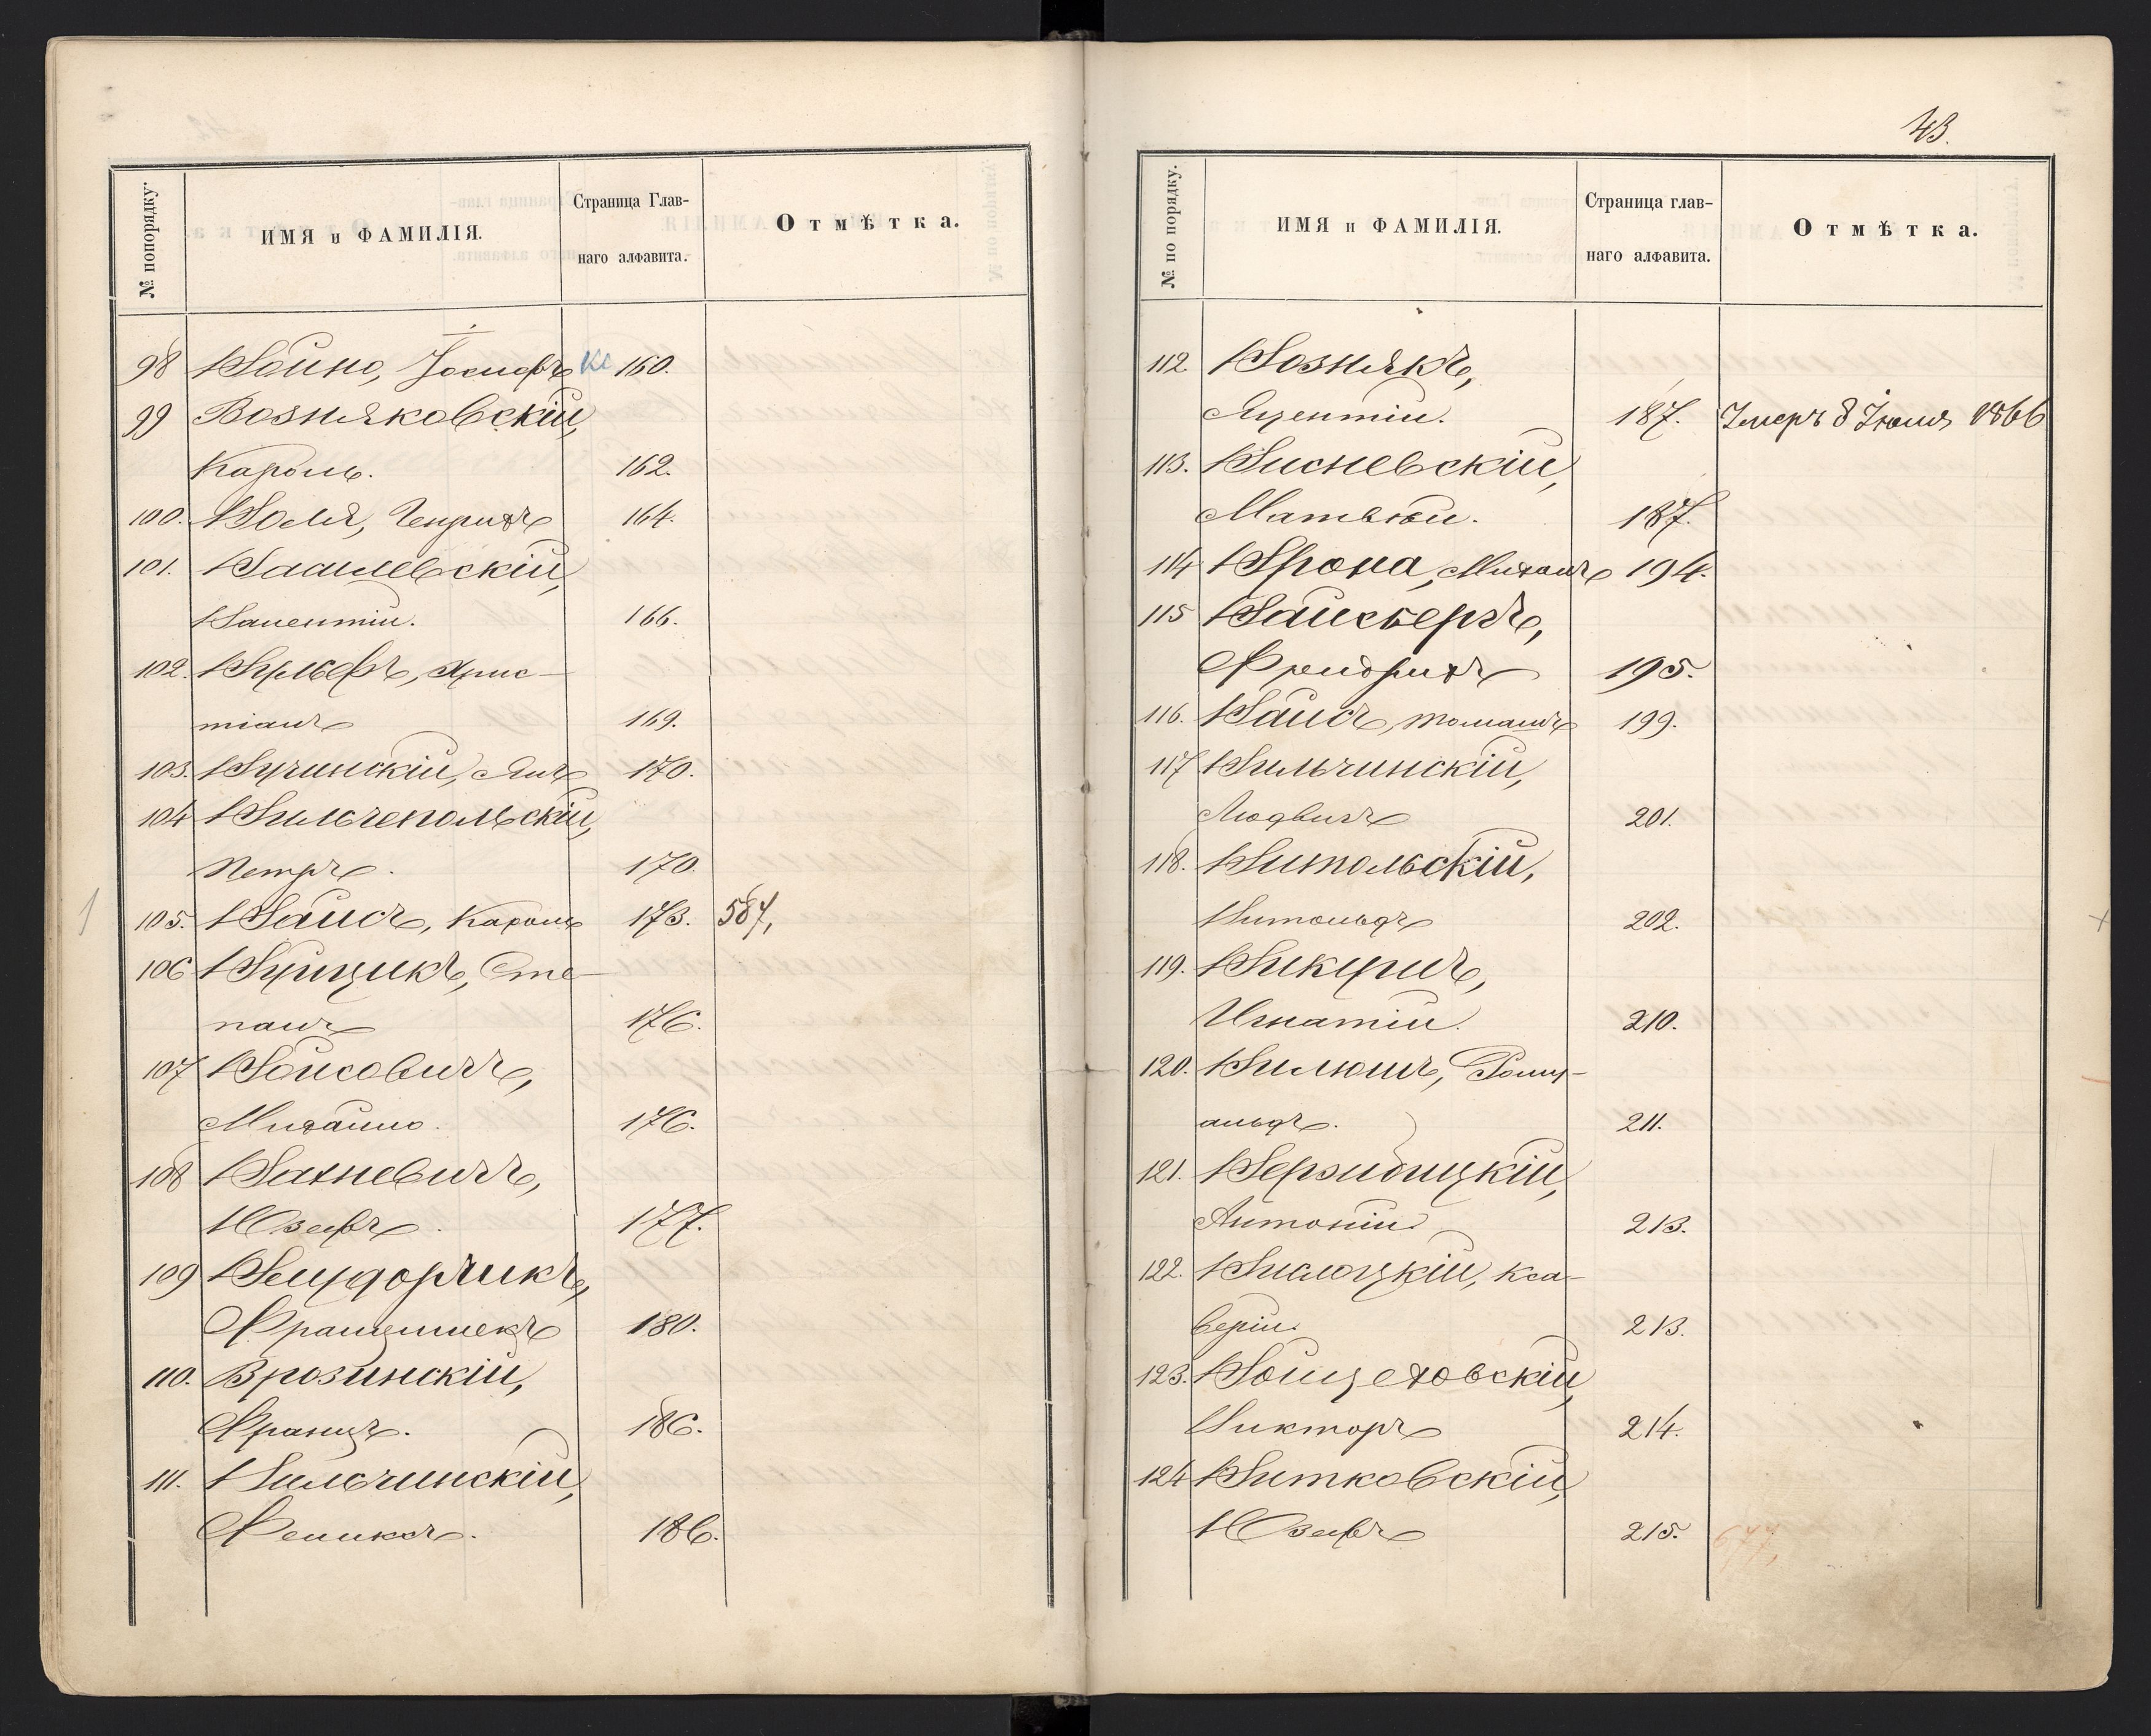 № попорядку.
ИМЯ и ФАМИЛІЯ.
Страница Глав-
наго алфавита.
Отмѣтка.
98 Войно, Іосифъ 160.
99 Возняковскій,
Кароль. 162.
100. Воля, Генрихъ 164.
101. Ваашевскій,
Валентій. 166.
102. Вульфъ, Хрис-
тіанъ 169.
103. Вучинскій, Янъ 170.
104 Вильчепольскій,
Петръ. 170.
105. Вайсъ, Кароль 173. 587,
106 Вуйцикъ, Сте-
панъ 176.
107 Войсовичъ,
Михайло. 176.
108 Вахневичъ,
Юзефъ. 177.
109
Францишекъ 180.
110. Врозинскій,
Францъ. 186.
111. Вильчинскій,
Феликсъ. 186.
43.
№ по порядку.
ИМЯ и ФАМИЛІЯ.
Страница глав-
наго алфавита.
Отмѣтка.
112. Вознякъ,
Яцентій. 187. Умеръ 8 Іюля 1866
113. Висневскій,
Матвѣй. 187.
114 Врона, Михаилъ 194.
115
Фридрихъ 195.
116. Вайсъ, Томашъ 199.
117 Вильчинскій,
Людвигъ 201.
118. Витольскій,
Витольдъ 202.
119.
Игнатій. 210.
120. Вилюшъ, Рому-
альдъ. 211.
121. Вержибицкій,
Антоній 213.
122. Вислоцкій, Кса-
верій. 213.
123. Войцеховскій,
Викторъ 214.
124 Витковскій,
Юзефъ 215. 677,